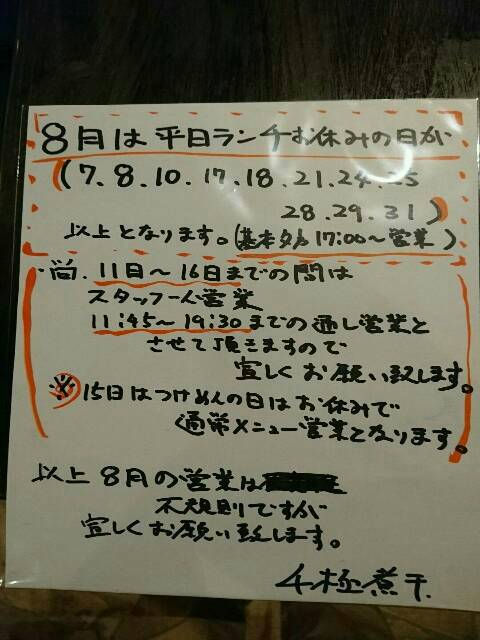 8月は平日ランチお休みの日が
(7.8.10.17.18.21.24.25
28.29.31)
以上となります。(基本夕方17:00〜営業)
尚.11日〜16日までの間は
スタッフ一人営業
11:45〜19:30までの通し営業と
させて頂きますので
宜しくお願い致します。
※15日はつけめんの日はお休みで
通常メニュー営業となります。
以上8月の営業は
不規則ですが
宜しくお願い致します。
千極煮干